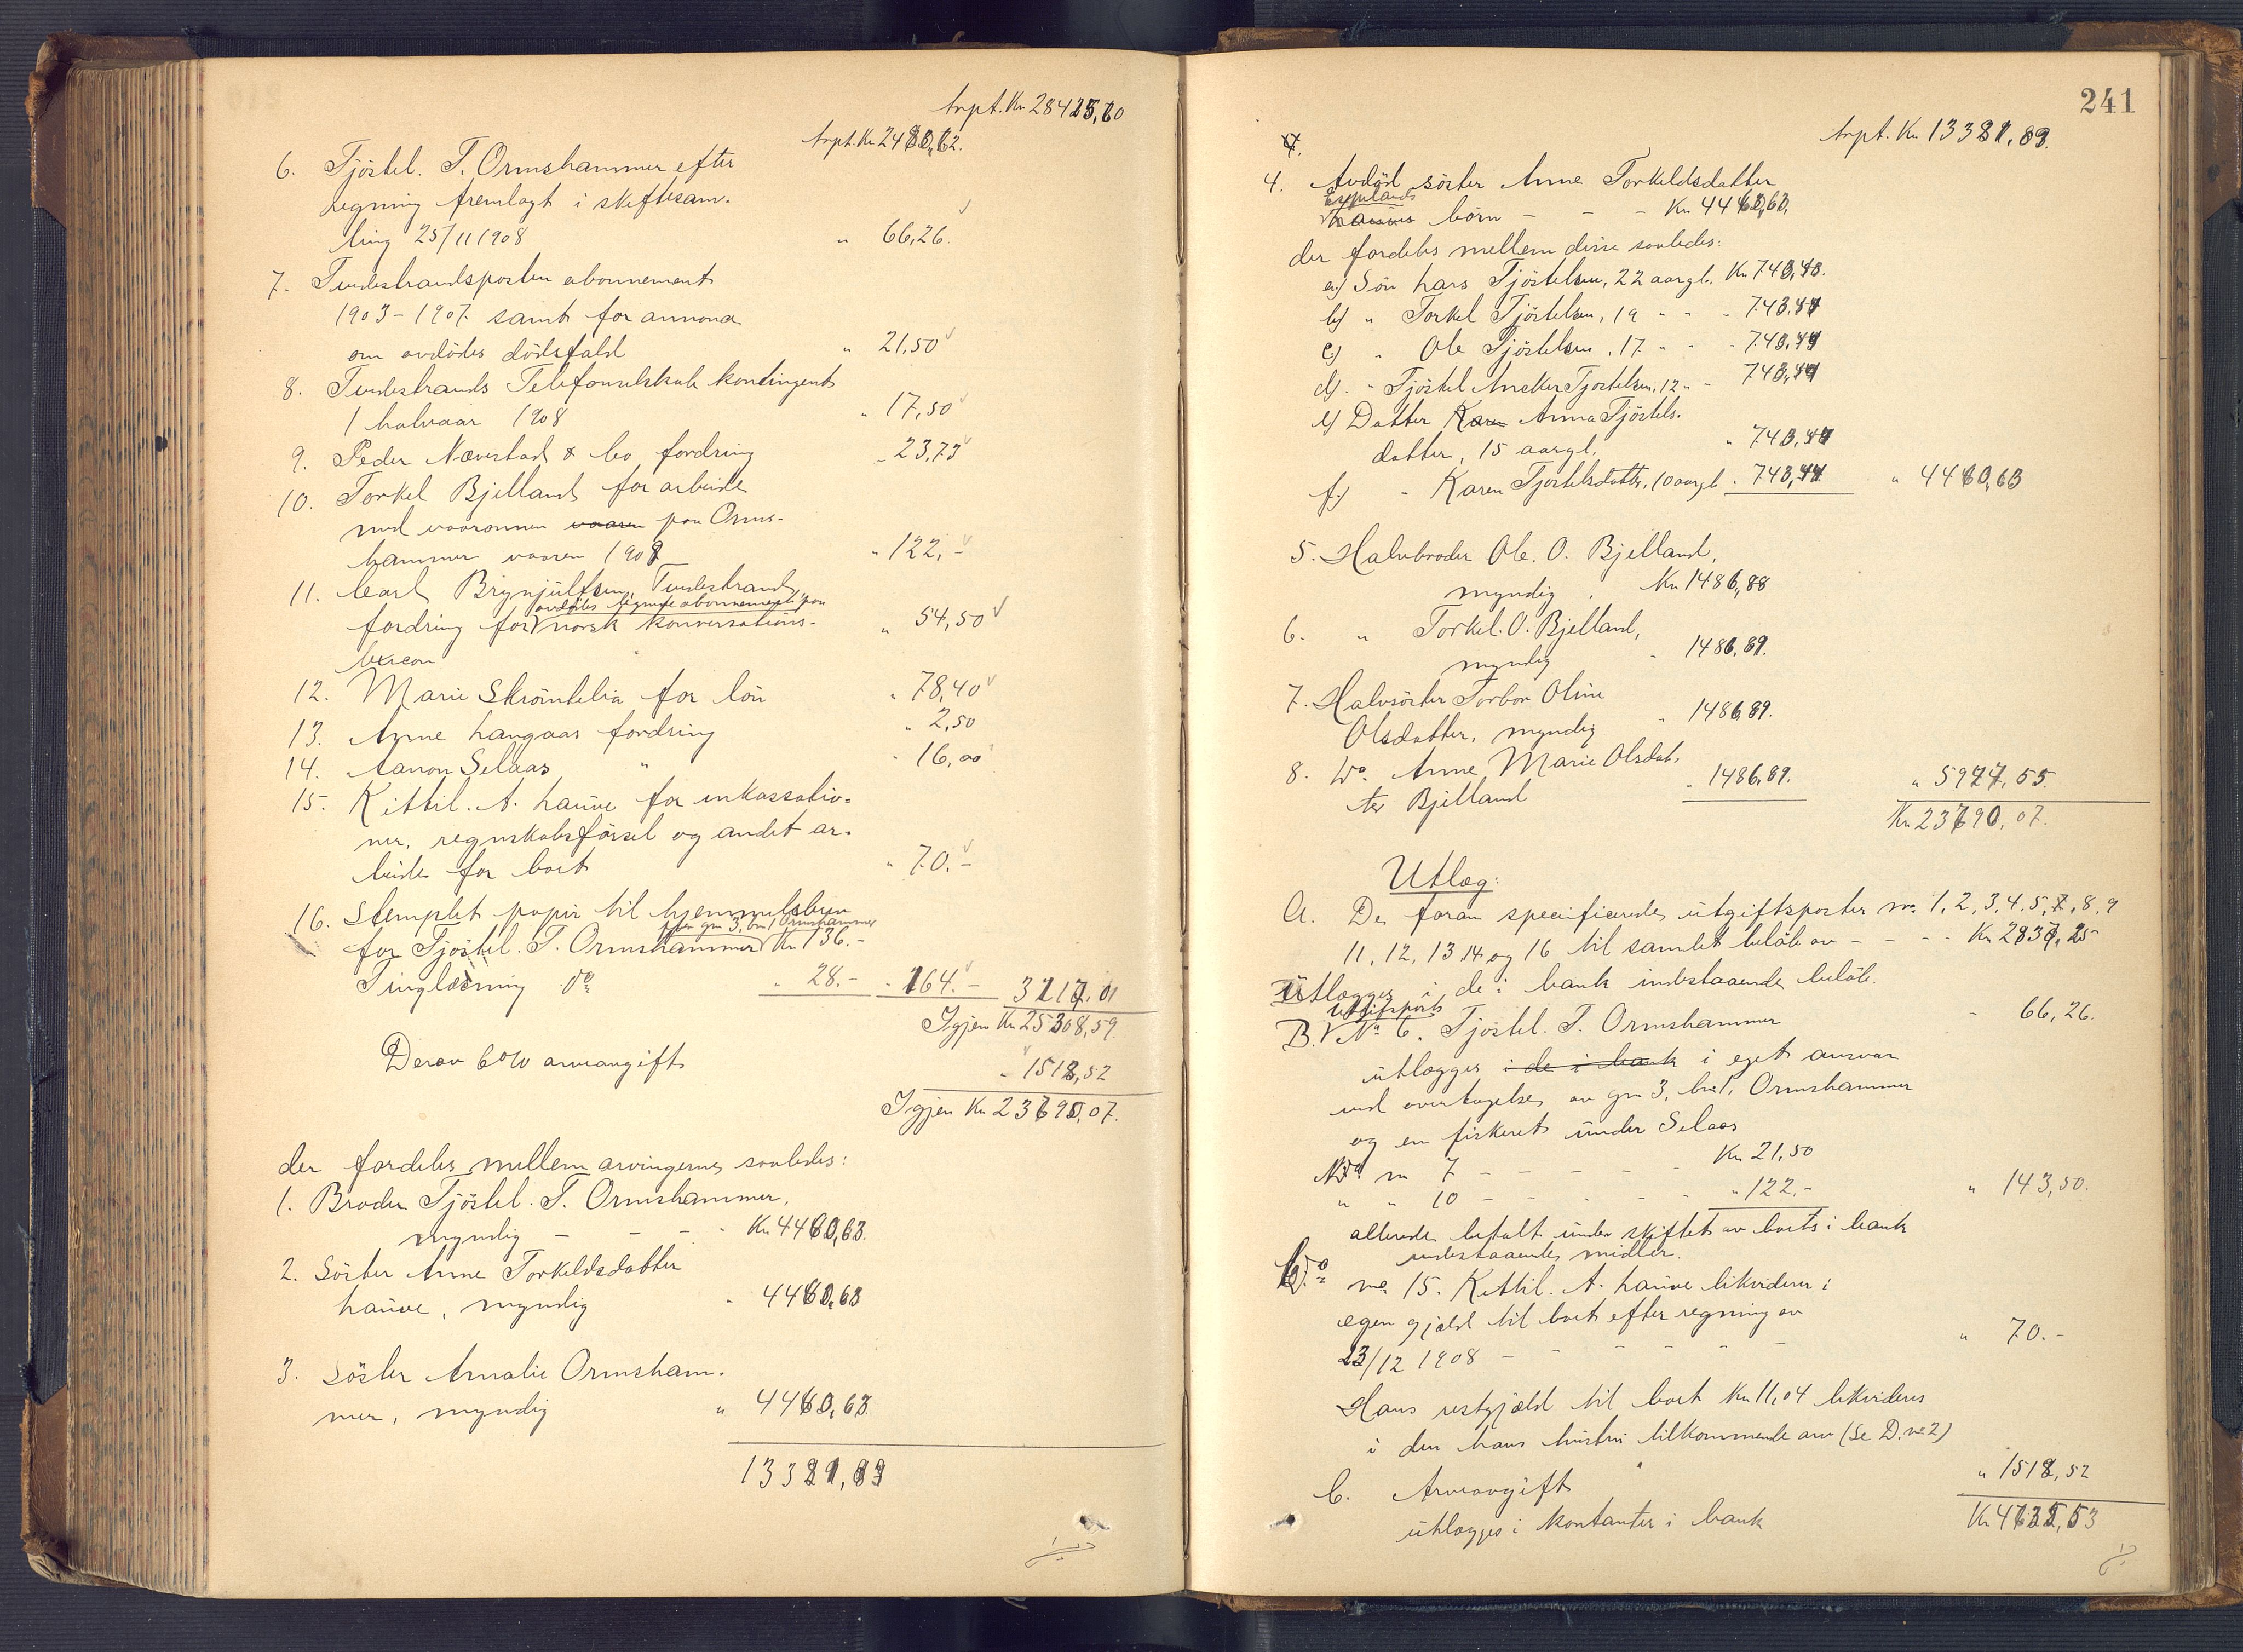 Trpt. Kr 28425,60
Trpt. Kr 2480,62.
6. Tjöstel. T. Ormshammer efter
regning fremlagt i skiftesam-
ling 25/11 1908 " 66,26.
7. Tvedestrandsposten abonnement
1903-1907 samt for annonce
om avdödes dödsfald " 21,50
8. Tvedestrands Telefonselskab kontingent
1 halvaar 1908 " 17,50
9. Peder Næverstad & Co fordring " 23,73
10. Torkel Bjelland for arbeide
med vaaronnen vaaren paa Orms-
hammer vaaren 1908 " 122,-
11. Carl Brynjulfsen, Tvedestrand,
avdödes tegnede abonnement paa
fordring for norsk konversations- " 54,50
lexicon
12. Marie Skrömtelia for lön " 78,40
13. Anne Langaas fordring " 2,50
14. Aanon Selaas " " 16,00
15. Kittil. A. Lauve for inkassatio-
ner, regnskabsförsel og andet ar-
beide for boet " 70.-
16. Stemplet papir til hjemmelsbrev
paa gn 3, bn 1 Ormshammer
for Tjöstel. T. Ormshammer Kr 136.-
Tinglæsning do " 28.- " 164.- 3117,01
Igjen Kr 25308,59.
Derav 6% arveavgift " 1518,52
Igjen Kr 23790,07.
der fordeles mellem arvingerne saaledes:
1. Broder Tjöstel. T. Ormshammer,
myndig - - - Kr 4460,63.
2. Söster Anne Torkeldsdatter
Lauve, myndig " 4460,63
3. Söster Amalie Ormsham-
mer, myndig " 4460,63
13381,89
241
Trpt. Kr 13381,89.
4. Avdöd söster Anne Torkeldsdatter
Espelands
Lauves börn - - - Kr 4460,63,
der fordeles mellem disse saaledes:
a) Sön Lars Tjöstelsen, 22 aar gl. Kr 743,43.
b) " Torkel Tjöstelsen, 19 " - - 743,44
c) " Ole Tjöstelsen, 17 - - - 743,44
d) " Tjöstel Ansker Tjöstelsen, 12 " - 743,44
e) Datter Karen Anna Tjöstels-
datter, 15 aar gl. " 743,44
f) " Karen Tjöstelsdatter, 10 aar gl " 743,44 " 4460,63
5. Halvbroder Ole. O. Bjelland,
myndig . Kr 1486,88
6. " Torkel. O. Bjelland,
myndig - 1486,89.
7. Halvsöster Torbor Oline
Olsdatter, myndig " 1486,89.
8. Do. Anne Marie Olsdat-
ter Bjelland " 1486,89. " 5947,55.
Kr 23790,07.
Utlæg:
A. De foran specificerede utgiftsposter nr. 1, 2, 3, 4, 5, 7, 8, 9
11, 12, 13 14 og 16 til samlet beløb av - - - - Kr 2837,25
Utlægges i de i bank indestaaende belöb.
Utgiftspost
B. Nr. 6. Tjöstel. T. Ormshammer - 66,26.
utlægges i de i bank i eget ansvar
ved overtagelsen av gn 3, bn 1, Ormshammer
og en fiskeret under Selaas
Do nr 7 - - - - - Kr 21,50
" " 10 - - - - - " 122,- " 143,50.
allerede betalt under skiftet av boets i bank
indestaaende midler.
Do nr. 15. Kittil. A. Lauve likviderer i
egen gjæld til boet efter regning av
23/12 1908 - - - - - - " 70.-
Hans restgjæld til boet Kr 11,04 likvideres
i den hans hustru tilkommende arv (Se D. nr. 2)
C. Arveavgift " 1518,52
utlægges i kontanter i bank Kr 4635,53